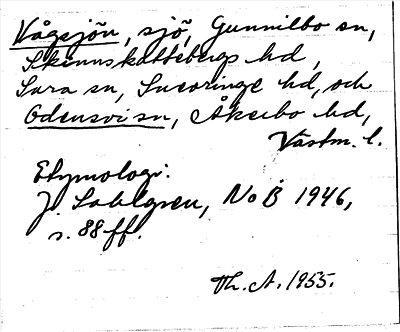 Vågsjön, sjö, Gunnilbo sn,
Skinnskattebergs hd,
Sura sn, Snevringe hd, och
Odensvi sn, Åkerbo hd,
Västm. l.
Etymologi:
J. Sahlgren, NoB 1946,
s. 88 ff.
Th. A. 1955.